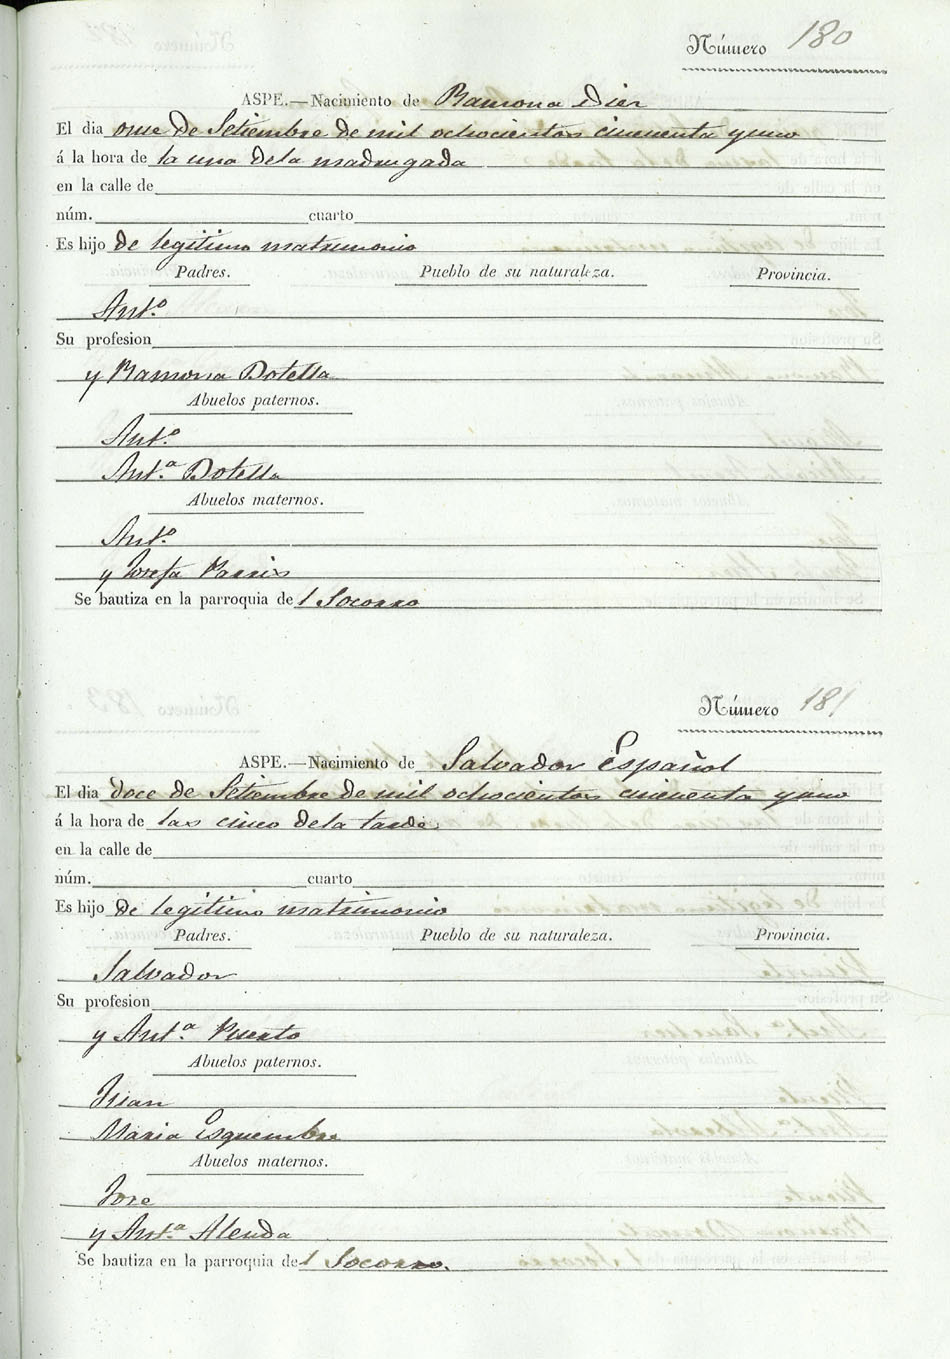 Número 180
ASPE.—Nacimiento de Ramona Dier
El dia onse de Setiembre de mil ochocientos cincuenta y uno
á la hora de la una dela madrugada
en la calle de
núm. cuarto
Es hijo de legitimo matrimonio
Padres. Pueblo de su naturaleza. Provincia.
Antº
Su profesion
y Ramona Botella
Abuelos paternos.
Antº
Antª Botella
Abuelos maternos.
Antº
y Josefa
Se bautiza en la parroquia del Socorro
Número 181
ASPE.—Nacimiento de Salvador Español
El dia doce de Setiembre de mil ochocientos cincuenta y uno
á la hora de las cinco dela tarde
en la calle de
núm. cuarto
Es hijo de legitimo matrimonio
Padres. Pueblo de su naturaleza. Provincia.
Salvador
Su profesion
y Antª Puerto
Abuelos paternos.
Juan
Maria Esquembre
Abuelos maternos.
Jose
y Antª Alenda
Se bautiza en la parroquia del Socorro.